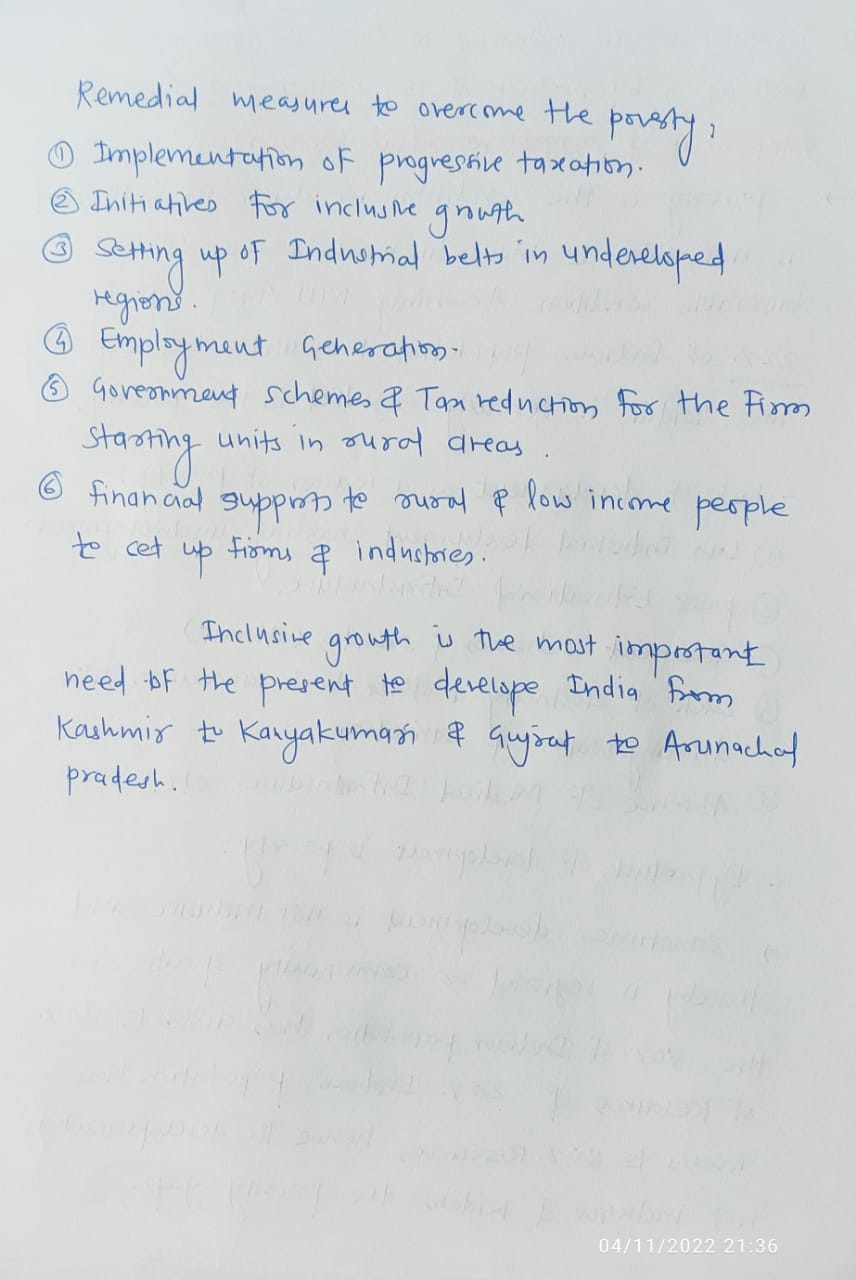 Remedial measures to overcome the poverty,
① Implementation of progressive taxation.
② Initiatives for inclusive growth
③ Setting up of Industrial belts in undeveloped
regions.
④ Employment Generation.
⑤ Government schemes & Tax reduction for the Firm
starting units in rural areas.
⑥ financial supports to rural & low income people
to cet up firms & industries.
Inclusive growth is the most important
need of the present to develope India from
Kashmir to Kanyakumari & Gujrat to Arunachal
pradesh.
04/11/2022 21:36